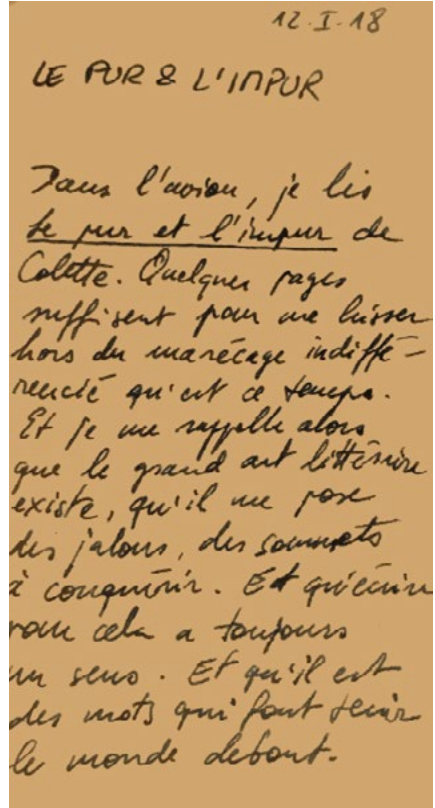 12.I.18
LE PUR & L'IMPUR
Dans l'avion, je lis
Le pur et l'impur de
Colette. Quelques pages
suffisent pour me hisser
hors du marécage indiffé-
rencié qu'est ce temps.
Et je me rappelle alors
que le grand art littéraire
existe, qu'il me pose
des jalons, des sommets
à conquérir. Et qu'écrire
pour cela a toujours
un sens. Et qu'il est
des mots qui font tenir
le monde debout.